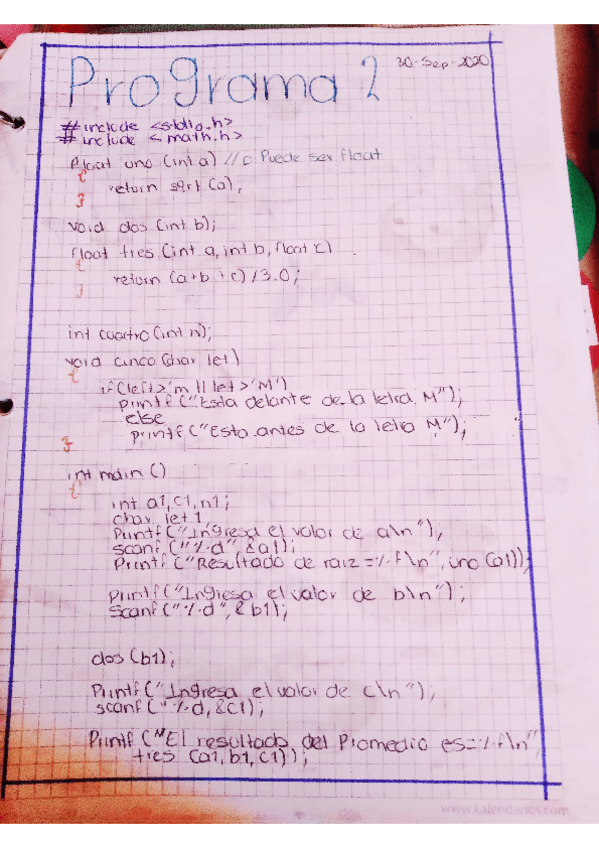 Programa 2
30-Sep-2020
#include <stdio.h>
#include <math.h>
float uno (int a) // c Puede ser float
{
return sqrt (a);
}
void dos (int b);
float tres (int a, int b, float c)
{
return (a+b+c)/3.0;
}
int cuatro (int n);
void cinco (char let)
{
if (let>'m || let>'M')
printf ("Esta delante de la letra M");
else
printf ("Esta antes de la letra M");
}
int main ()
{
int a1, c1, n1;
char let1,
Printf ("Ingresa el valor de a\n"),
scanf ("%d", &a1);
Printf ("Resultado de raiz =%f\n", uno (a1));
printf ("Ingresa el valor de b\n");
Scanf ("%d", &b1);
dos (b1);
Printf ("Ingresa el valor de c\n");
scanf ("%d, &c1);
Printf ("El resultado del Promedio es=%f\n",
tres (a1, b1, c1));
www.kalendarios.com